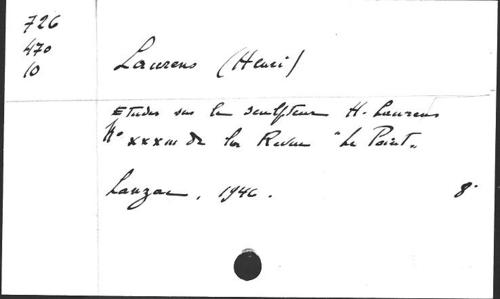 726
470
10
Laurens (Henri)
Etudes sur le sculpteur H. Laurens
N° XXXIII de la Revue "Le Point".
Lanzac, 1946. 8°